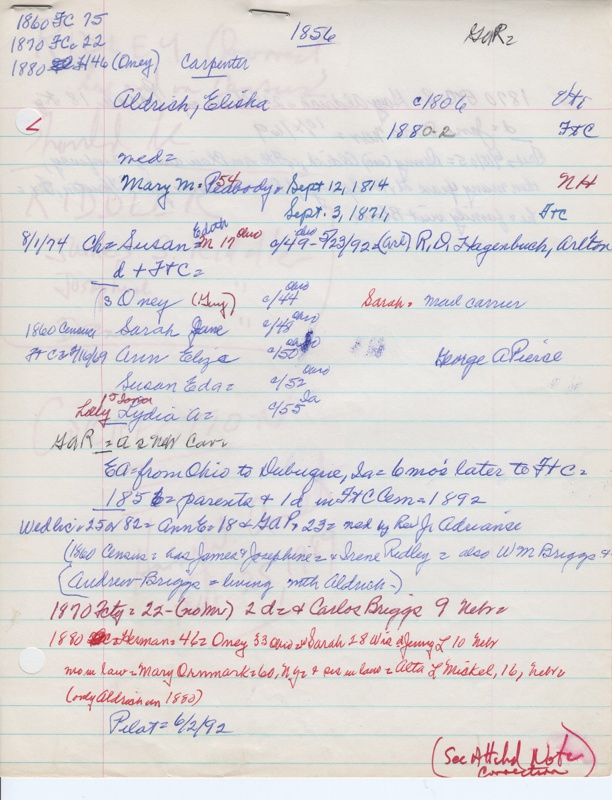 1860 FC 75
1870 FCo 22
1880 H 46 (Oney) Carpenter
1856
GaR=
Aldrich, Elisha c/1806 Vt
1880-2 FtC
med=
Mary M= Peabody= Sept 12, 1814 NH
54
Sept. 3, 1871, FtC
8/1/74 Ch= Susan Edith c/49 - 5/23/92 (art) R.D. Hagenbuch, Arlton
M 17 Ohio
d + FtC=
(3 Oney (Geny) c/44 Ohio Sarah= mail carrier
1860 Census Sarah Jane c/48 Ohio
FtC= 9/16/69 Ann Eliza c/50 Ohio George A Pierce
Susan Eda= c/52 Ohio
Lally Lydia A= c/55 Ia
GaR = a 2 Nebr Cav=
EA=from Ohio to Dubuque, Ia= 6 mo's later to FtC=
1856= parents + 1d in FtC Cem= 1892
Wed lic= 25 or 82= Ann E= 18 + GAP, 23= med by Rev J. Adrianse
(1860 Census= has James + Josephine= + Irene Ridley= also Wm Briggs +
(Andrew Briggs = living with Aldrich-)
1870 Fcty= 22- (no Mr) 2 d= + Carlos Briggs 9 Nebr=
1880 = Herman= 46= Oney 33 Ohio= + Sarah 28 Wis d Jenny L 10 Nebr
mo in law= Mary Ornmark= 60, N.Y.= + sis in law= Alta L Miskel, 16, Nebr=
(only Aldrich in 1880)
Pilot= 6/2/92
(See Attchd Note
Correction)